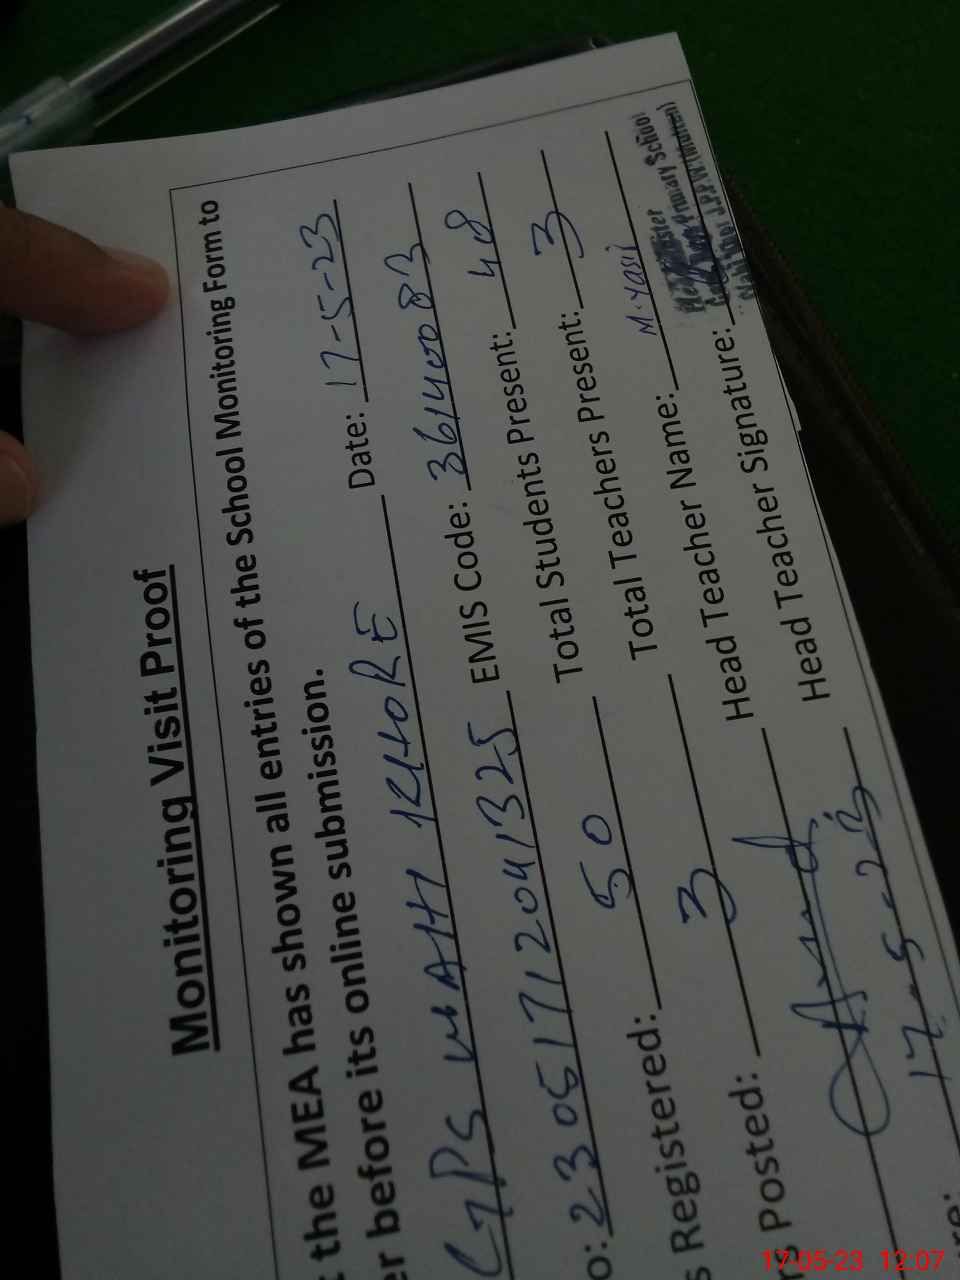 Monitoring Visit Proof
the MEA has shown all entries of the School Monitoring Form to
er before its online submission.
GPS WAHI Date: 17-5-23
o: 23051712041325 EMIS Code: 36140083
s Registered: 50 Total Students Present: 48
rs Posted: 3 Total Teachers Present: 3
Head Teacher Name: M.Yasi
17-5-23 Head Teacher Signature:
Primary School
re:
17-05-23 12:07